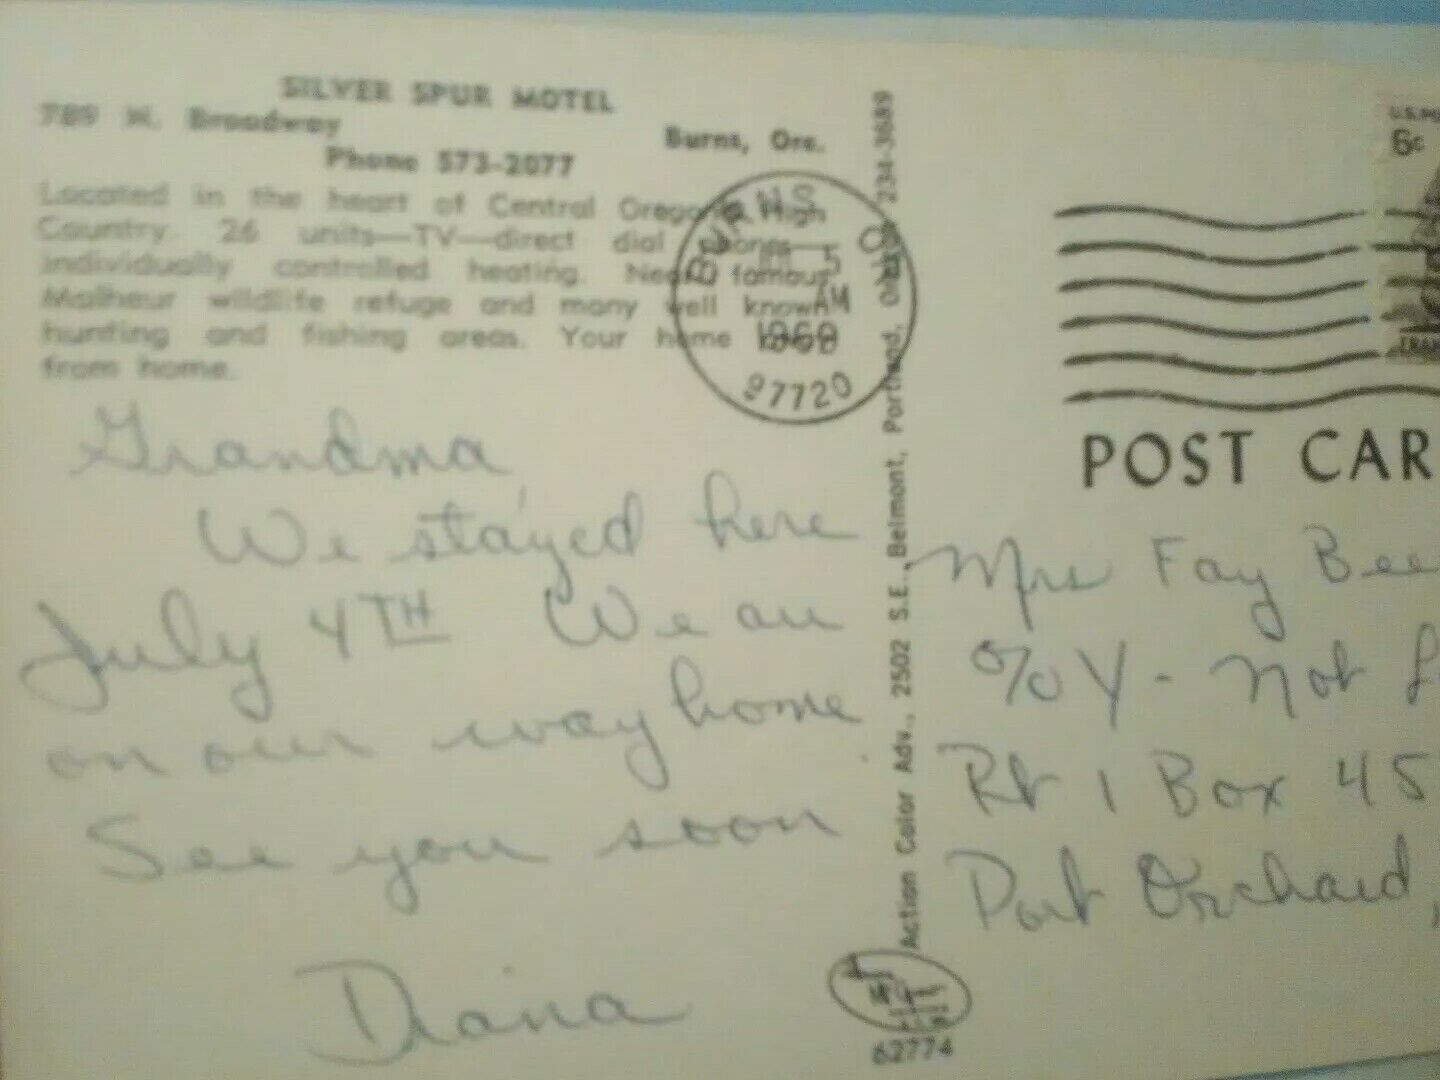 SILVER SPUR MOTEL
789 N. Broadway
Burns, Ore.
Phone 573-2077
Located in the heart of Central Oregon's High
Country. 26 units—TV—direct dial phones—
individually controlled heating. Near famous
Malheur wildlife refuge and many well known
hunting and fishing areas. Your home away
from home.
BURNS
5
AM
1969
97720
U.S.PO
6c
POST CAR
Grandma,
We stayed here
July 4TH We are
on our way home
See you soon
Diana
Action Color Adv., 2502 S.E. Belmont, Portland, Oregon 234-3689
62774
Mrs Fay Bee
% Y- Not
Rt 1 Box 45
Port Orchard,